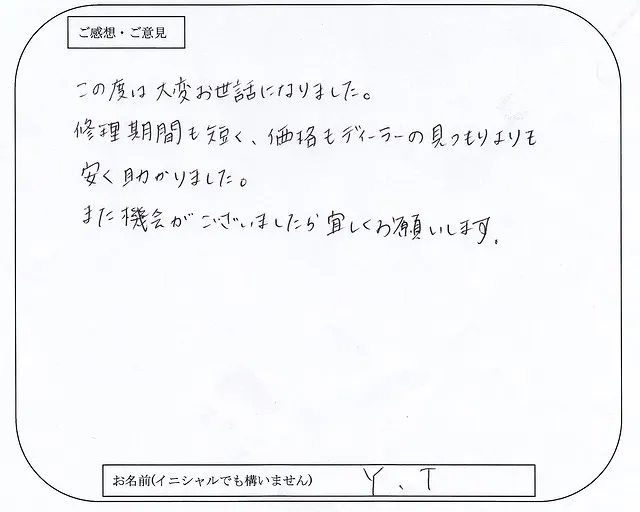 ご感想・ご意見
この度は大変お世話になりました。
修理期間も短く、価格もディーラーの見つもりよりも
安く助かりました。
また機会がございましたら宜しくお願いします。
お名前(イニシャルでも構いません) Y.T